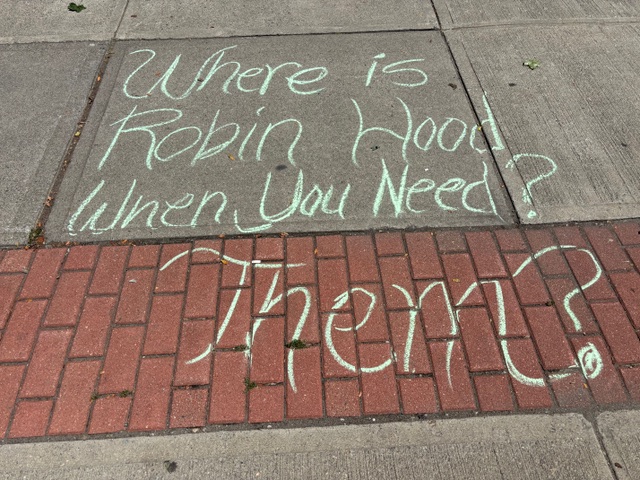 Where is
Robin Hood
When You Need?
Them?